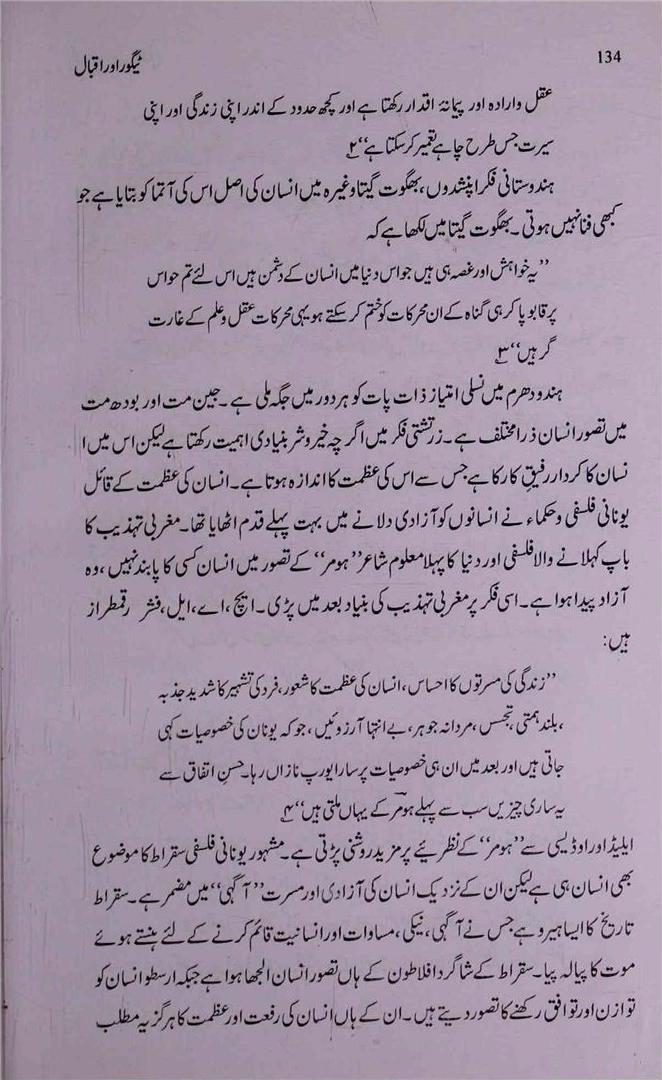 134
ٹیگور اور اقبال
عقل و ارادہ اور پیمانۂ اقدار رکھتا ہے اور کچھ حدود کے اندر اپنی زندگی اور اپنی
سیرت جس طرح چاہے تعمیر کر سکتا ہے‘‘ ۲؎
ہندوستانی فکر اپنشدوں، بھگوت گیتا وغیرہ میں انسان کی اصل اس کی آتما کو بتایا ہے جو
کبھی فنا نہیں ہوتی۔ بھگوت گیتا میں لکھا ہے کہ
’’یہ خواہش اور غصہ ہی ہیں جو اس دنیا میں انسان کے دشمن ہیں اس لئے تم حواس
پر قابو پا کر ہی گناہ کے ان محرکات کو ختم کر سکتے ہو یہی محرکات عقل و علم کے غارت
گر ہیں‘‘ ۳؎
ہندو دھرم میں نسلی امتیاز ذات پات کو ہر دور میں جگہ ملی ہے۔ جین مت اور بودھ مت
میں تصور انسان ذرا مختلف ہے۔ زرتشتی فکر میں اگر چہ خیر و شر بنیادی اہمیت رکھتا ہے لیکن اس میں ا
نسان کا کردار رفیقِ کار کا ہے جس سے اس کی عظمت کا اندازہ ہوتا ہے۔ انسان کی عظمت کے قائل
یونانی فلسفی و حکماء نے انسانوں کو آزادی دلانے میں بہت پہلے قدم اٹھایا تھا۔ مغربی تہذیب کا
باپ کہلانے والا فلسفی اور دنیا کا پہلا معلوم شاعر ’’ہومر‘‘ کے تصور میں انسان کسی کا پابند نہیں، وہ
آزاد پیدا ہوا ہے۔ اسی فکر پر مغربی تہذیب کی بنیاد بعد میں پڑی۔ ایچ، اے، ایل، فشر رقمطراز
ہیں:
’’زندگی کی مسرتوں کا احساس، انسان کی عظمت کا شعور، فرد کی تشہیر کا شدید جذبہ
، بلند ہمتی، تجسس، مردانہ جوہر، بے انتہا آرزوئیں، جو کہ یونان کی خصوصیات کہی
جاتی ہیں اور بعد میں ان ہی خصوصیات پر سارا یورپ نازاں رہا۔ حسنِ اتفاق سے
یہ ساری چیزیں سب سے پہلے ہومر کے یہاں ملتی ہیں‘‘ ۴؎
ایلیڈ اور اوڈیسی سے ’’ہومر‘‘ کے نظریئے پر مزید روشنی پڑتی ہے۔ مشہور یونانی فلسفی سقراط کا موضوع
بھی انسان ہی ہے لیکن ان کے نزدیک انسان کی آزادی اور مسرت ’’آگہی‘‘ میں مضمر ہے۔ سقراط
تاریخ کا ایسا ہیرو ہے جس نے آگہی، نیکی، مساوات اور انسانیت قائم کرنے کے لئے ہنستے ہوئے
موت کا پیالہ پیا۔ سقراط کے شاگرد افلاطون کے ہاں تصور انسان الجھا ہوا ہے جبکہ ارسطو انسان کو
توازن اور توافق رکھنے کا تصور دیتے ہیں۔ ان کے ہاں انسان کی رفعت اور عظمت کا ہرگز یہ مطلب